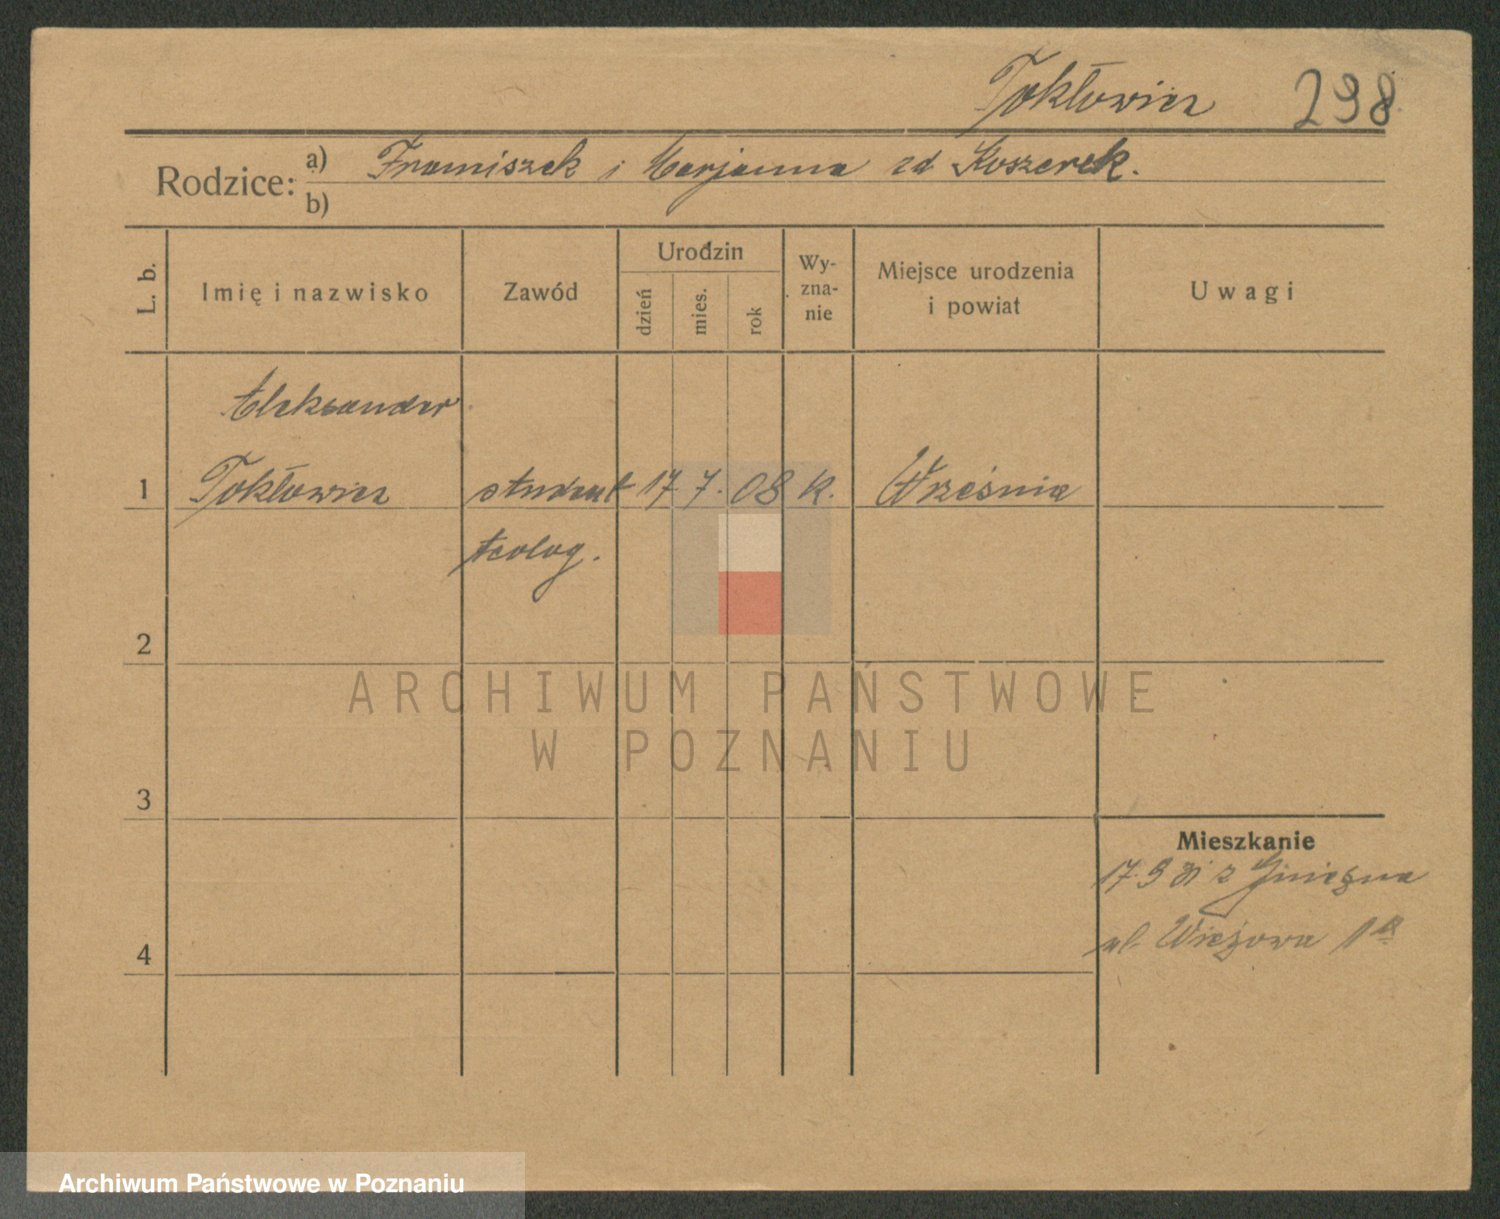 Tokłowicz 298
Rodzice: a) Franciszek i Marjanna zd Koszerek.
b)
L. b. Imię i nazwisko Zawód Urodzin dzień mies. rok Wy-zna-nie Miejsce urodzenia i powiat Uwagi
Aleksander
1 Tokłowicz student 17 7. 08 k. Września
teolog.
2
ARCHIWUM PAŃSTWOWE
W POZNANIU
3
Mieszkanie
17. 9 31 z Gniezna
4 ul. Wieżowa
Archiwum Państwowe w Poznaniu